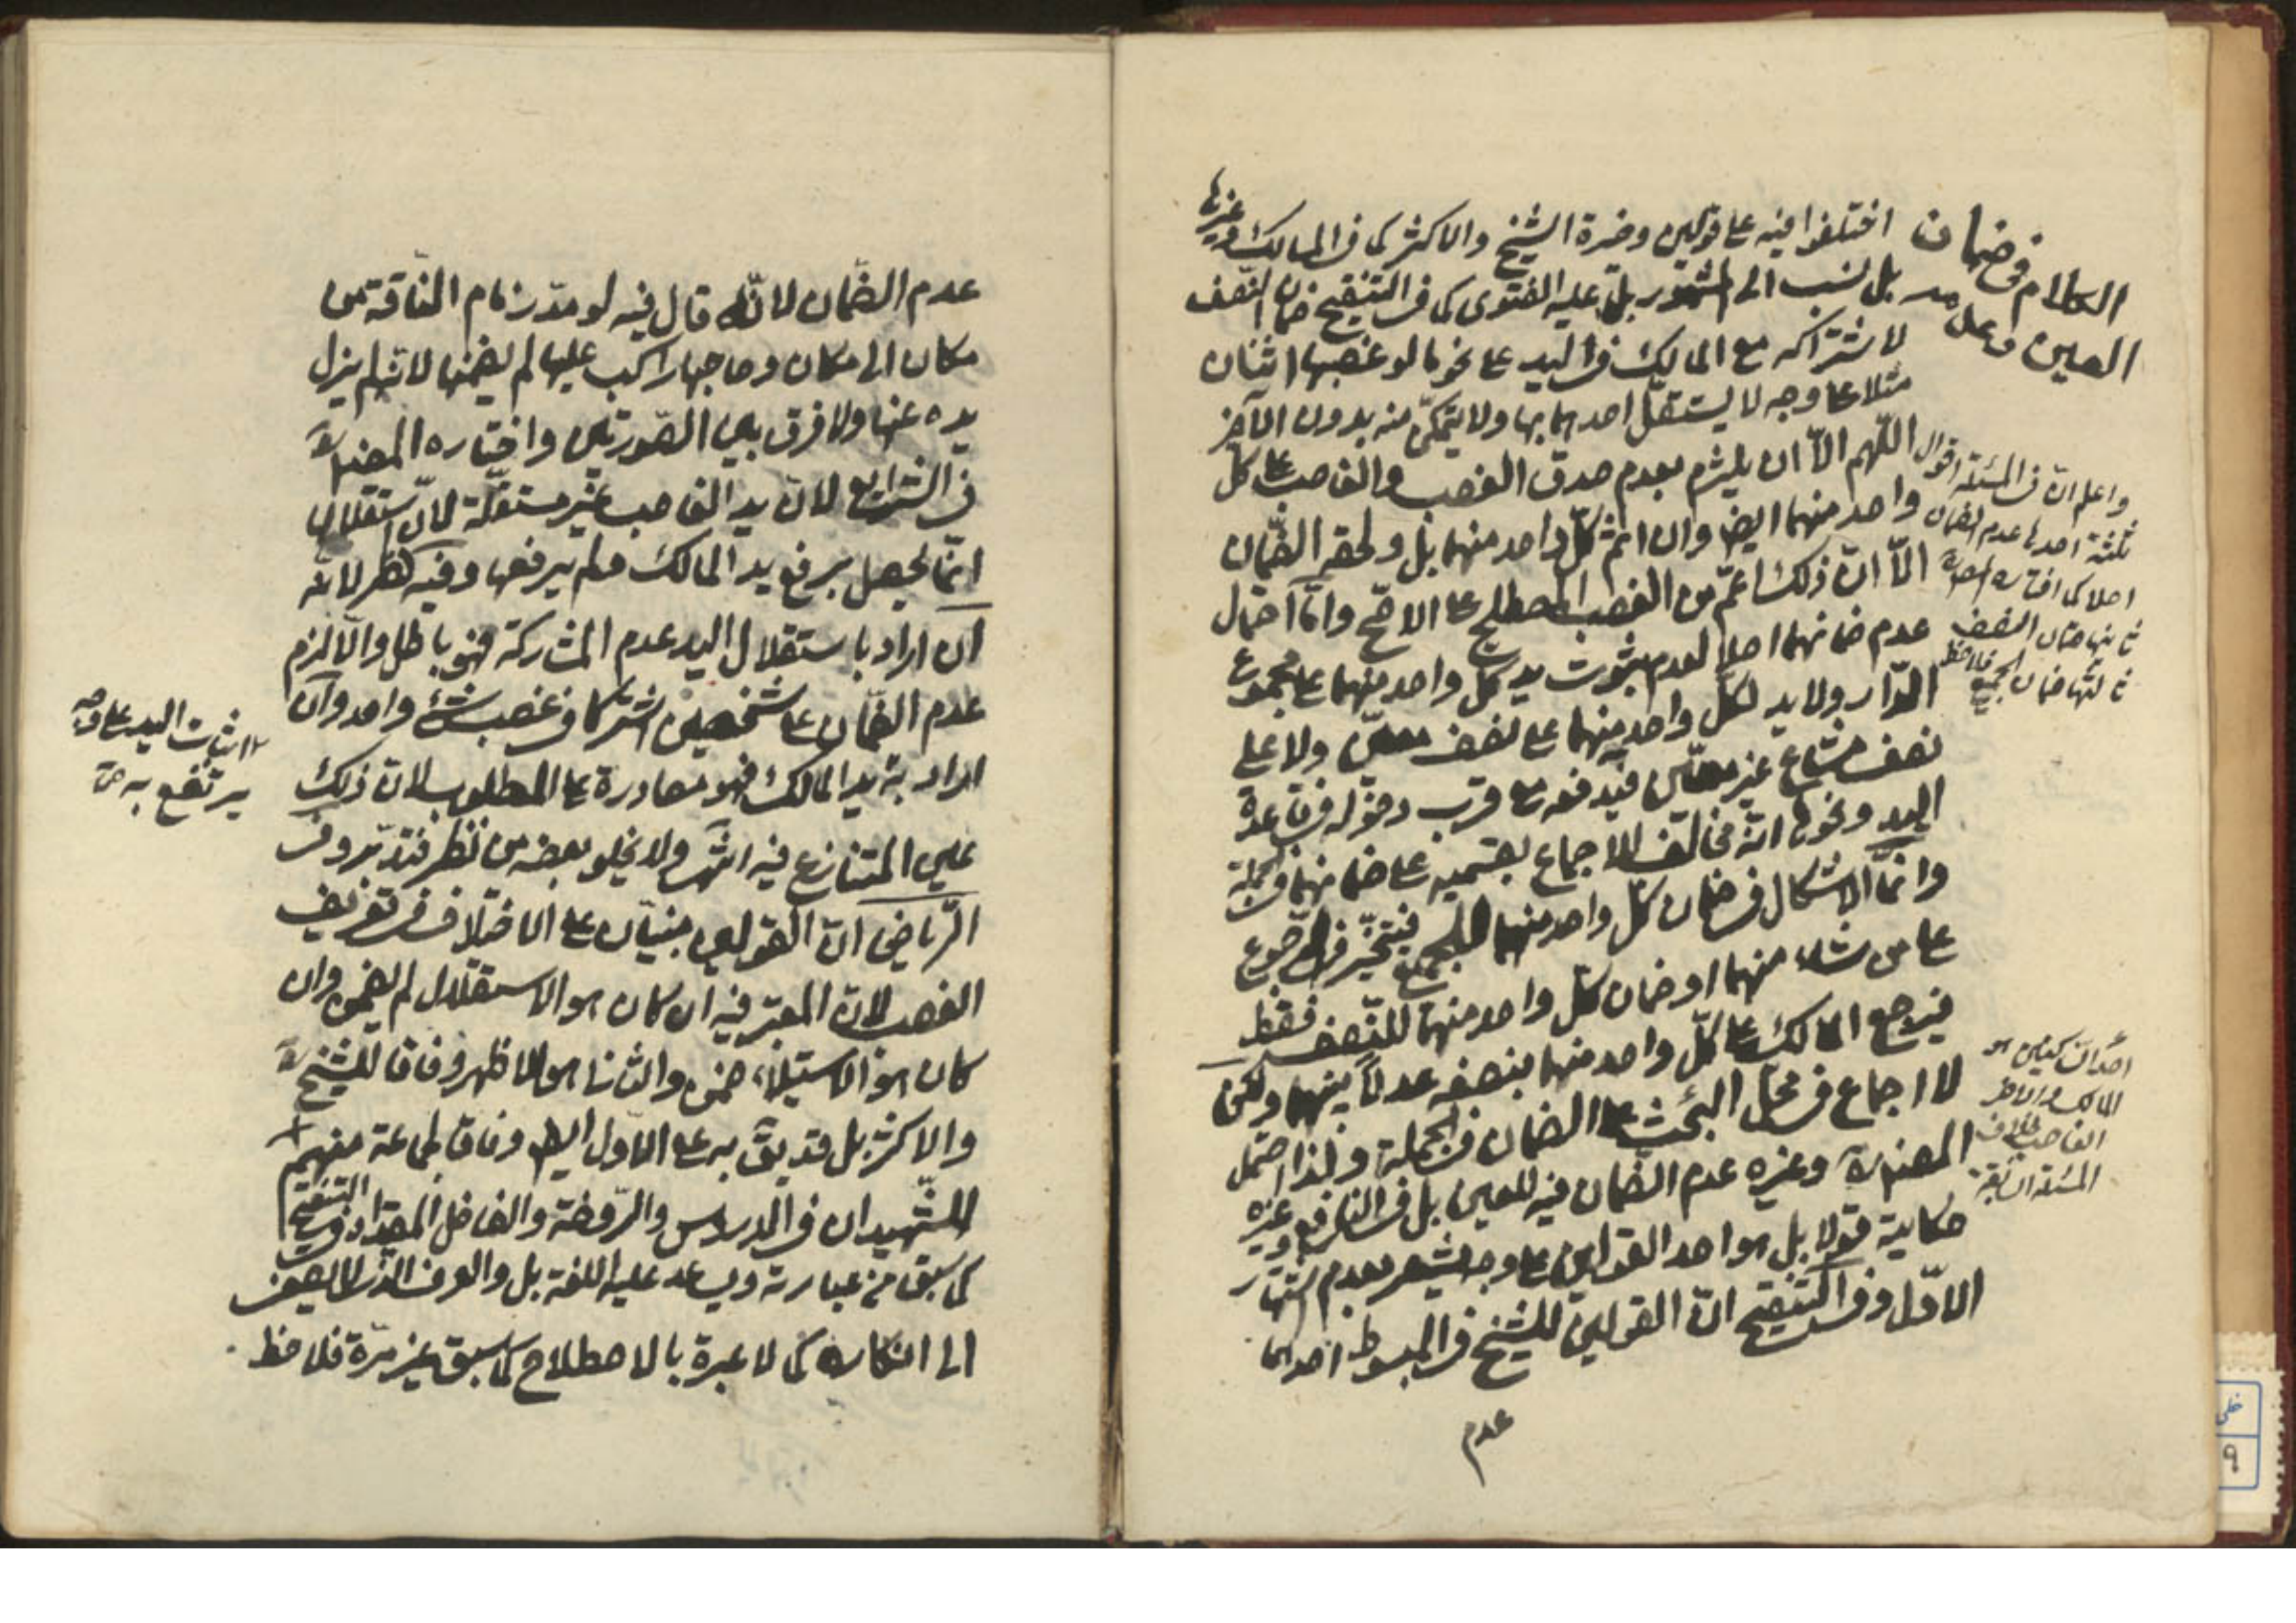 الكلام في ضمان
العين وعدمه
اختلفوا فيه على قولين وخيرة الشيخ والاكثر كما في المسالك وغيرها
بل نسب الى المشهور بل عليه الفتوى كما في التنقيح ضمان النصف
لاشتراكه مع المالك في اليد على نحو ما لو غصبها اثنان
مثلا على وجه لا يستقل احدهما بها ولا يتمكن منه بدون الآخر
اللهم الا ان يلتزم بعدم صدق الغصب والغاصب على كل
واحد منهما ايضا وان اثم كل واحد منهما بل ولحقه الضمان
الا ان ذلك اعم من الغصب المصطلح على الاصح واما احتمال
عدم ضمانهما اصلا لعدم ثبوت يد كل واحد منهما على مجموع
الدار ولا يد لكل واحد منهما على نصف معين ولا على
نصف مشاع غير معين فيدفعه مع قرب دخوله في قاعدة
اليد ونحوها انه مخالف للاجماع بقسميه على ضمانهما في الجملة
وانما الاشكال في ضمان كل واحد منهما للجميع فيتخير في الرجوع
على من شاء منهما او ضمان كل واحد منهما للنصف فقط
فيرجع المالك على كل واحد منهما بنصفه عدلا بينهما ولكن
لا اجماع في محل البحث على الضمان في الجملة ولذا احتمل
المصنف وغيره عدم الضمان فيه للعين بل في النافع وغيره
حكاية قولا بل هو احد القولين على وجه يشعر بعدم اشتهار
الاول وفي التنقيح ان القولين للشيخ في المبسوط احدهما
عدم
واعلم ان في المسئلة اقوال
ثلثة احدها عدم الضمان
اصلا كما اختاره المصنف
ثانيها ضمان النصف
ثالثها ضمان الجميع فلاحظ
احد الساكنين هو
المالك والاخر
الغاصب بخلاف
المسئلة السابقة
عدم الضمان لانه قال فيه لو مد زمام الناقة من
مكان الى مكان وصاحبها راكب عليها لم يضمنها لانه لم يزل
يده عنها ولا فرق بين الصورتين واختاره المصنف
في الشرايع لان يد الغاصب غير مستقلة لان استقلالها
انما يحصل برفع يد المالك ولم يرفعها وفيه نظر لانه
ان اراد باستقلال اليد عدم المشاركة فهو باطل والا لزم
عدم الضمان على شخصين اشتركا في غصب شئ واحد وان
اراد به يد المالك فهو مصادرة على المطلوب لان ذلك
عين المتنازع فيه انتهى ولا يخلو بعضه من نظر فتدبر وفي
الرياض ان القولين مبنيان على الاختلاف في تعريف
الغصب لان المعتبر فيه ان كان هو الاستقلال لم يضمن وان
كان هو الاستيلاء ضمن والثاني هو الاظهر وفاقا للشيخ
والاكثر بل قد يق به على الاول ايضا وفاقا لجماعة منهم
الشهيدان في الدروس والروضة والفاضل المقداد في التنقيح
كما سبق من عبارته ويساعد عليه اللغة بل والعرف الذي لا يصغى
الى انكاره كما لا عبرة بالاصطلاح كما سبق غير مرة فلاحظ
اثبات اليد على وجه
يرتفع به